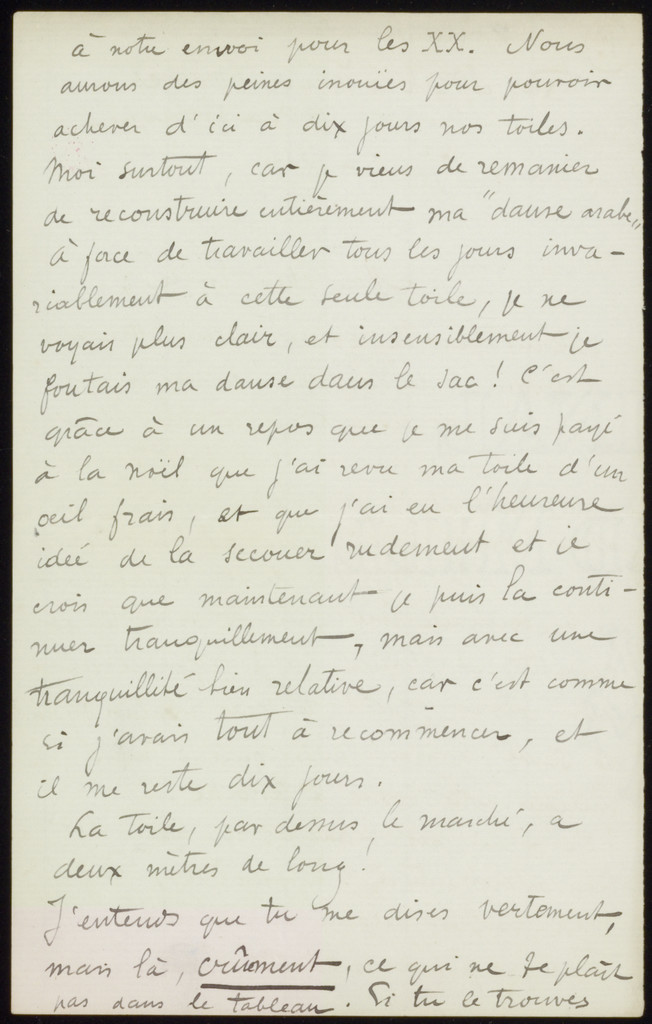 à notre envoi pour les XX. Nous
aurons des peines inouïes pour pouvoir
achever d'ici à dix jours nos toiles.
Moi surtout, car je viens de remanier
de reconstruire entièrement ma "danse arabe"
à force de travailler tous les jours inva-
riablement à cette seule toile, je ne
voyais plus clair, et insensiblement je
foutais ma danse dans le sac! C'est
grâce à un repos que je me suis payé
à la noël que j'ai revu ma toile d'un
œil frais, et que j'ai eu l'heureuse
ideé de la secouer rudement et je
crois que maintenant je puis la conti-
nuer tranquillement, mais avec une
tranquillité bien relative, car c'est comme
si j'avais tout à recommencer, et
il me reste dix jours.
La toile, par dessus le marché, a
deux mètres de long!
J'entends que tu me dises vertement,
mais là, crûment, ce qui ne te plaît
pas dans le tableau. Si tu le trouves